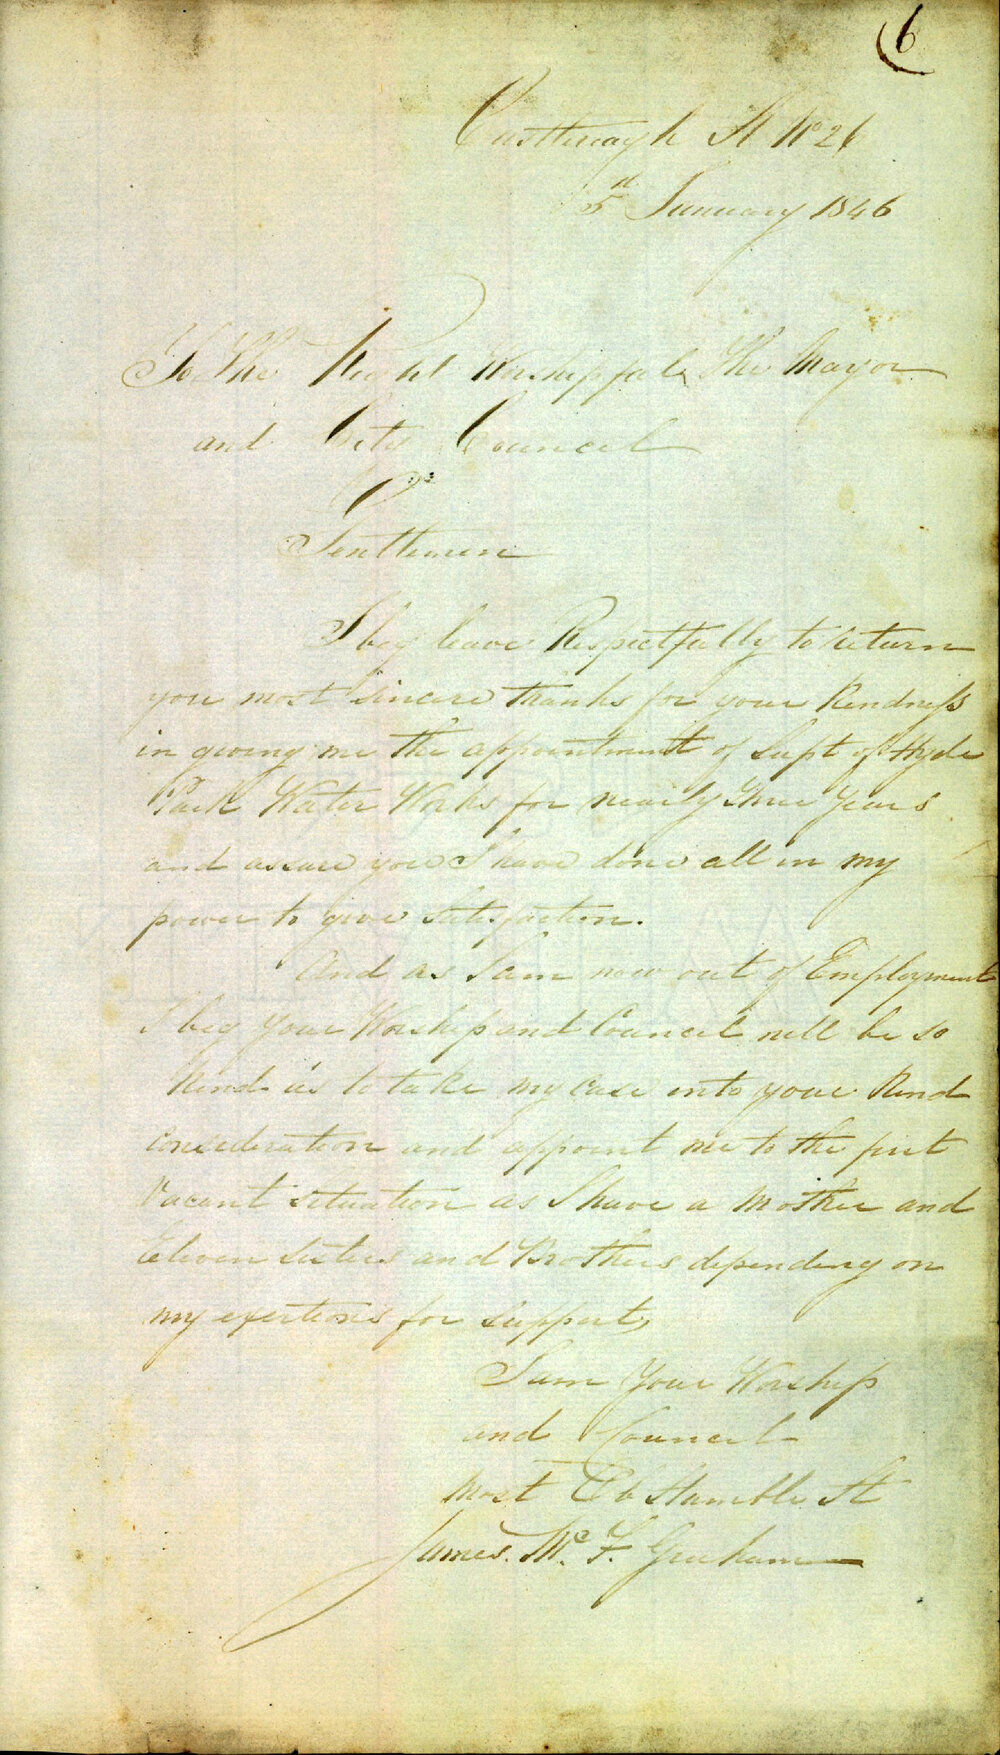 6
Castlereagh St No 26
5th January 1846
To The Right Worshipful The Mayor
and City Council
&c
Gentlemen
I beg leave Respectfully to return
you most sincere thanks for your Kindness
in giving me the appointment of Supt of Hyde
Park Water Works for nearly three Years
and assure you I have done all in my
power to give Satisfaction.
And as I am now out of Employment
I beg Your Worship and Council will be so
Kind as to take my Case into your Kind
Consideration and appoint me to the first
Vacant situation as I have a Mother and
Eleven Sisters and Brothers depending on
my exertions for support,
I am Your Worship
and Council
Most Ob Humble St
James. Mc. F. Graham